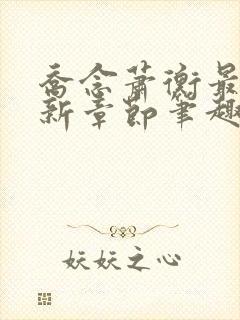 乔念萧衡最
新章节笔趣
妖妖之心